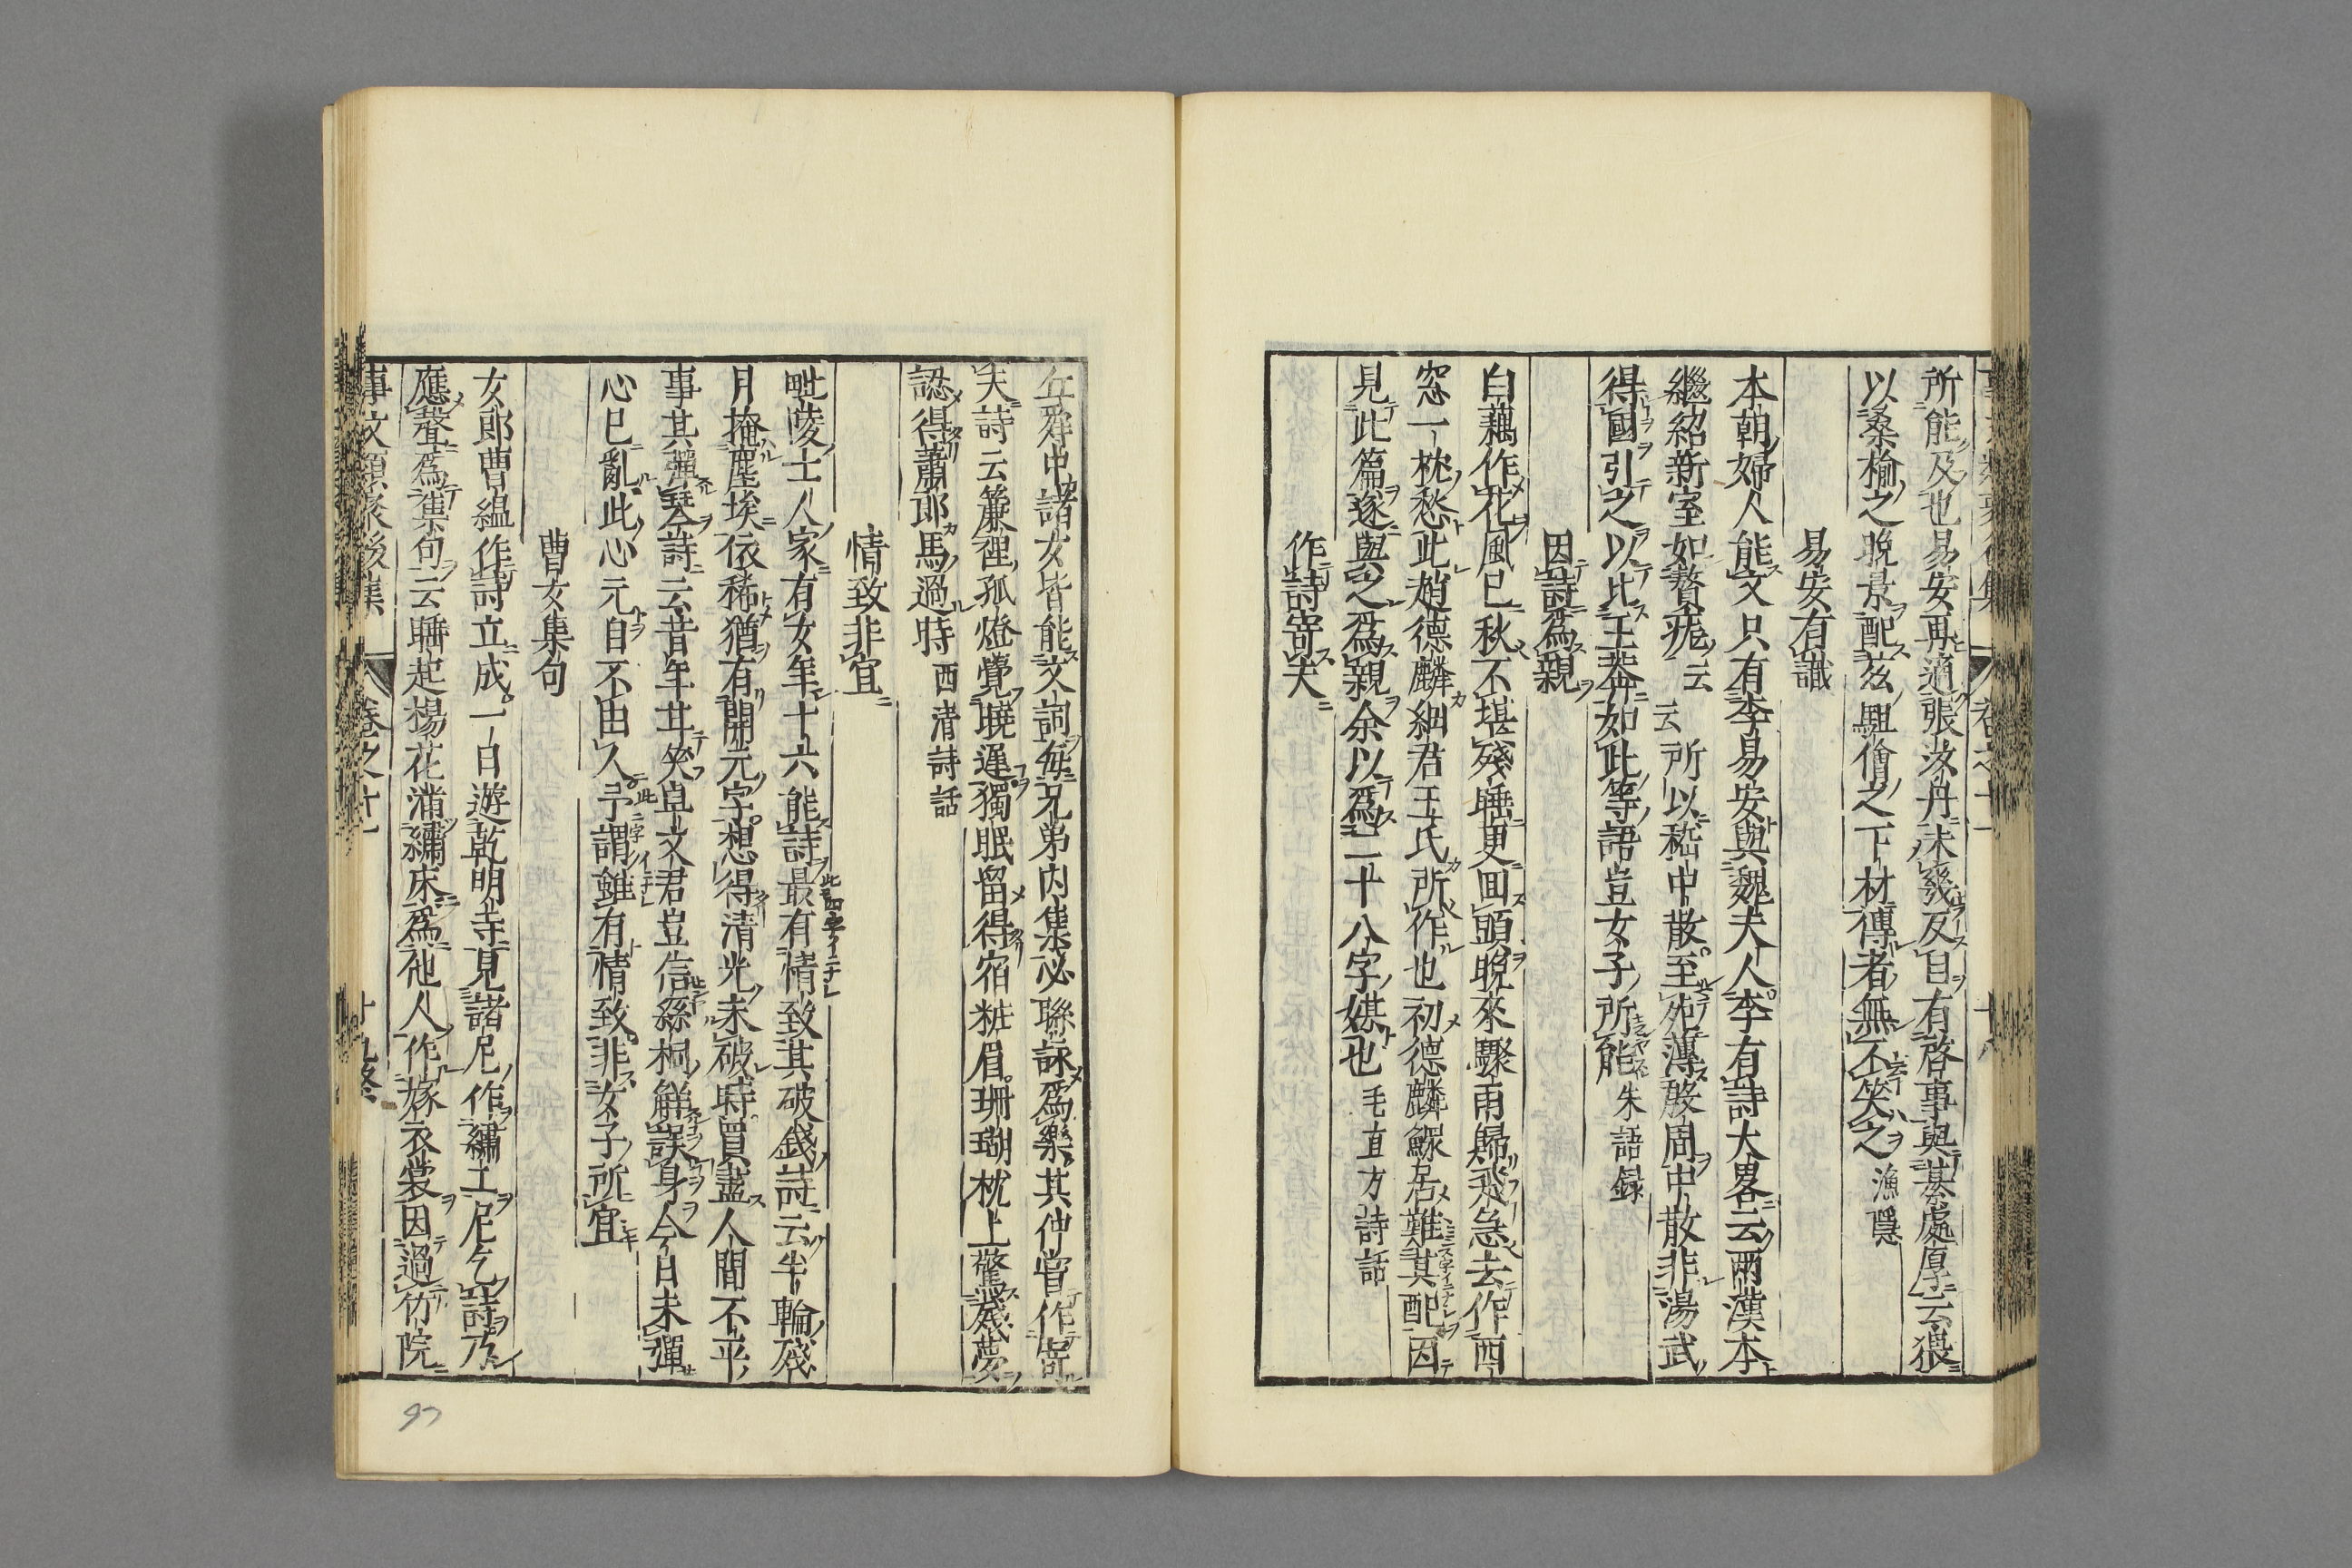 所能及也易安再適張汝舟未幾反目有啓事與綦處厚云猥
以桑榆之晚景配茲駔儈之下材傳者無不笑之 漁隱
易安有識
本朝婦人能文只有李易安與魏夫人李有詩大畧云兩漢本
繼紹新室如贅疣云云所以嵇中散至死薄殷周中散非湯武
得國引之以比王莽如此等語豈女子所能 朱語録
因詩爲親
白藕作花風已秋不堪殘睡更回頭晚來驟雨歸飛急去作西
窓一枕愁此趙德麟細君王氏所作也初德麟鰥居難其配因
見此篇遂與之爲親余以爲二十八字媒也 毛直方詩話
作詩寄夫
丘舜中諸女皆能文詞每兄弟内集必聯詠爲樂其仲嘗作寄
夫詩云簾裡孤燈覺曉遲獨眠留得宿粧眉珊瑚枕上驚殘夢
認得蕭郎馬過時 西清詩話
情致非宜
毗陵士人家有女年十六能詩最有情致其破錢詩云半輪殘
月掩塵埃依稀猶有開元字想得清光未破時買盡人間不平
事其彈琴詩云昔年其笑卓文君豈信絲桐觧誤身今日未彈
心已亂此心元自不由人予謂雖有情致非女子所宜
曹女集句
女郎曹緼作詩立成一日遊乾明寺見諸尼作繡工尼乞詩乃
應聲爲集句云睡起楊花滿繡床爲他人作嫁衣裳因過竹院
事文類聚後集 卷之十一 十九終
97